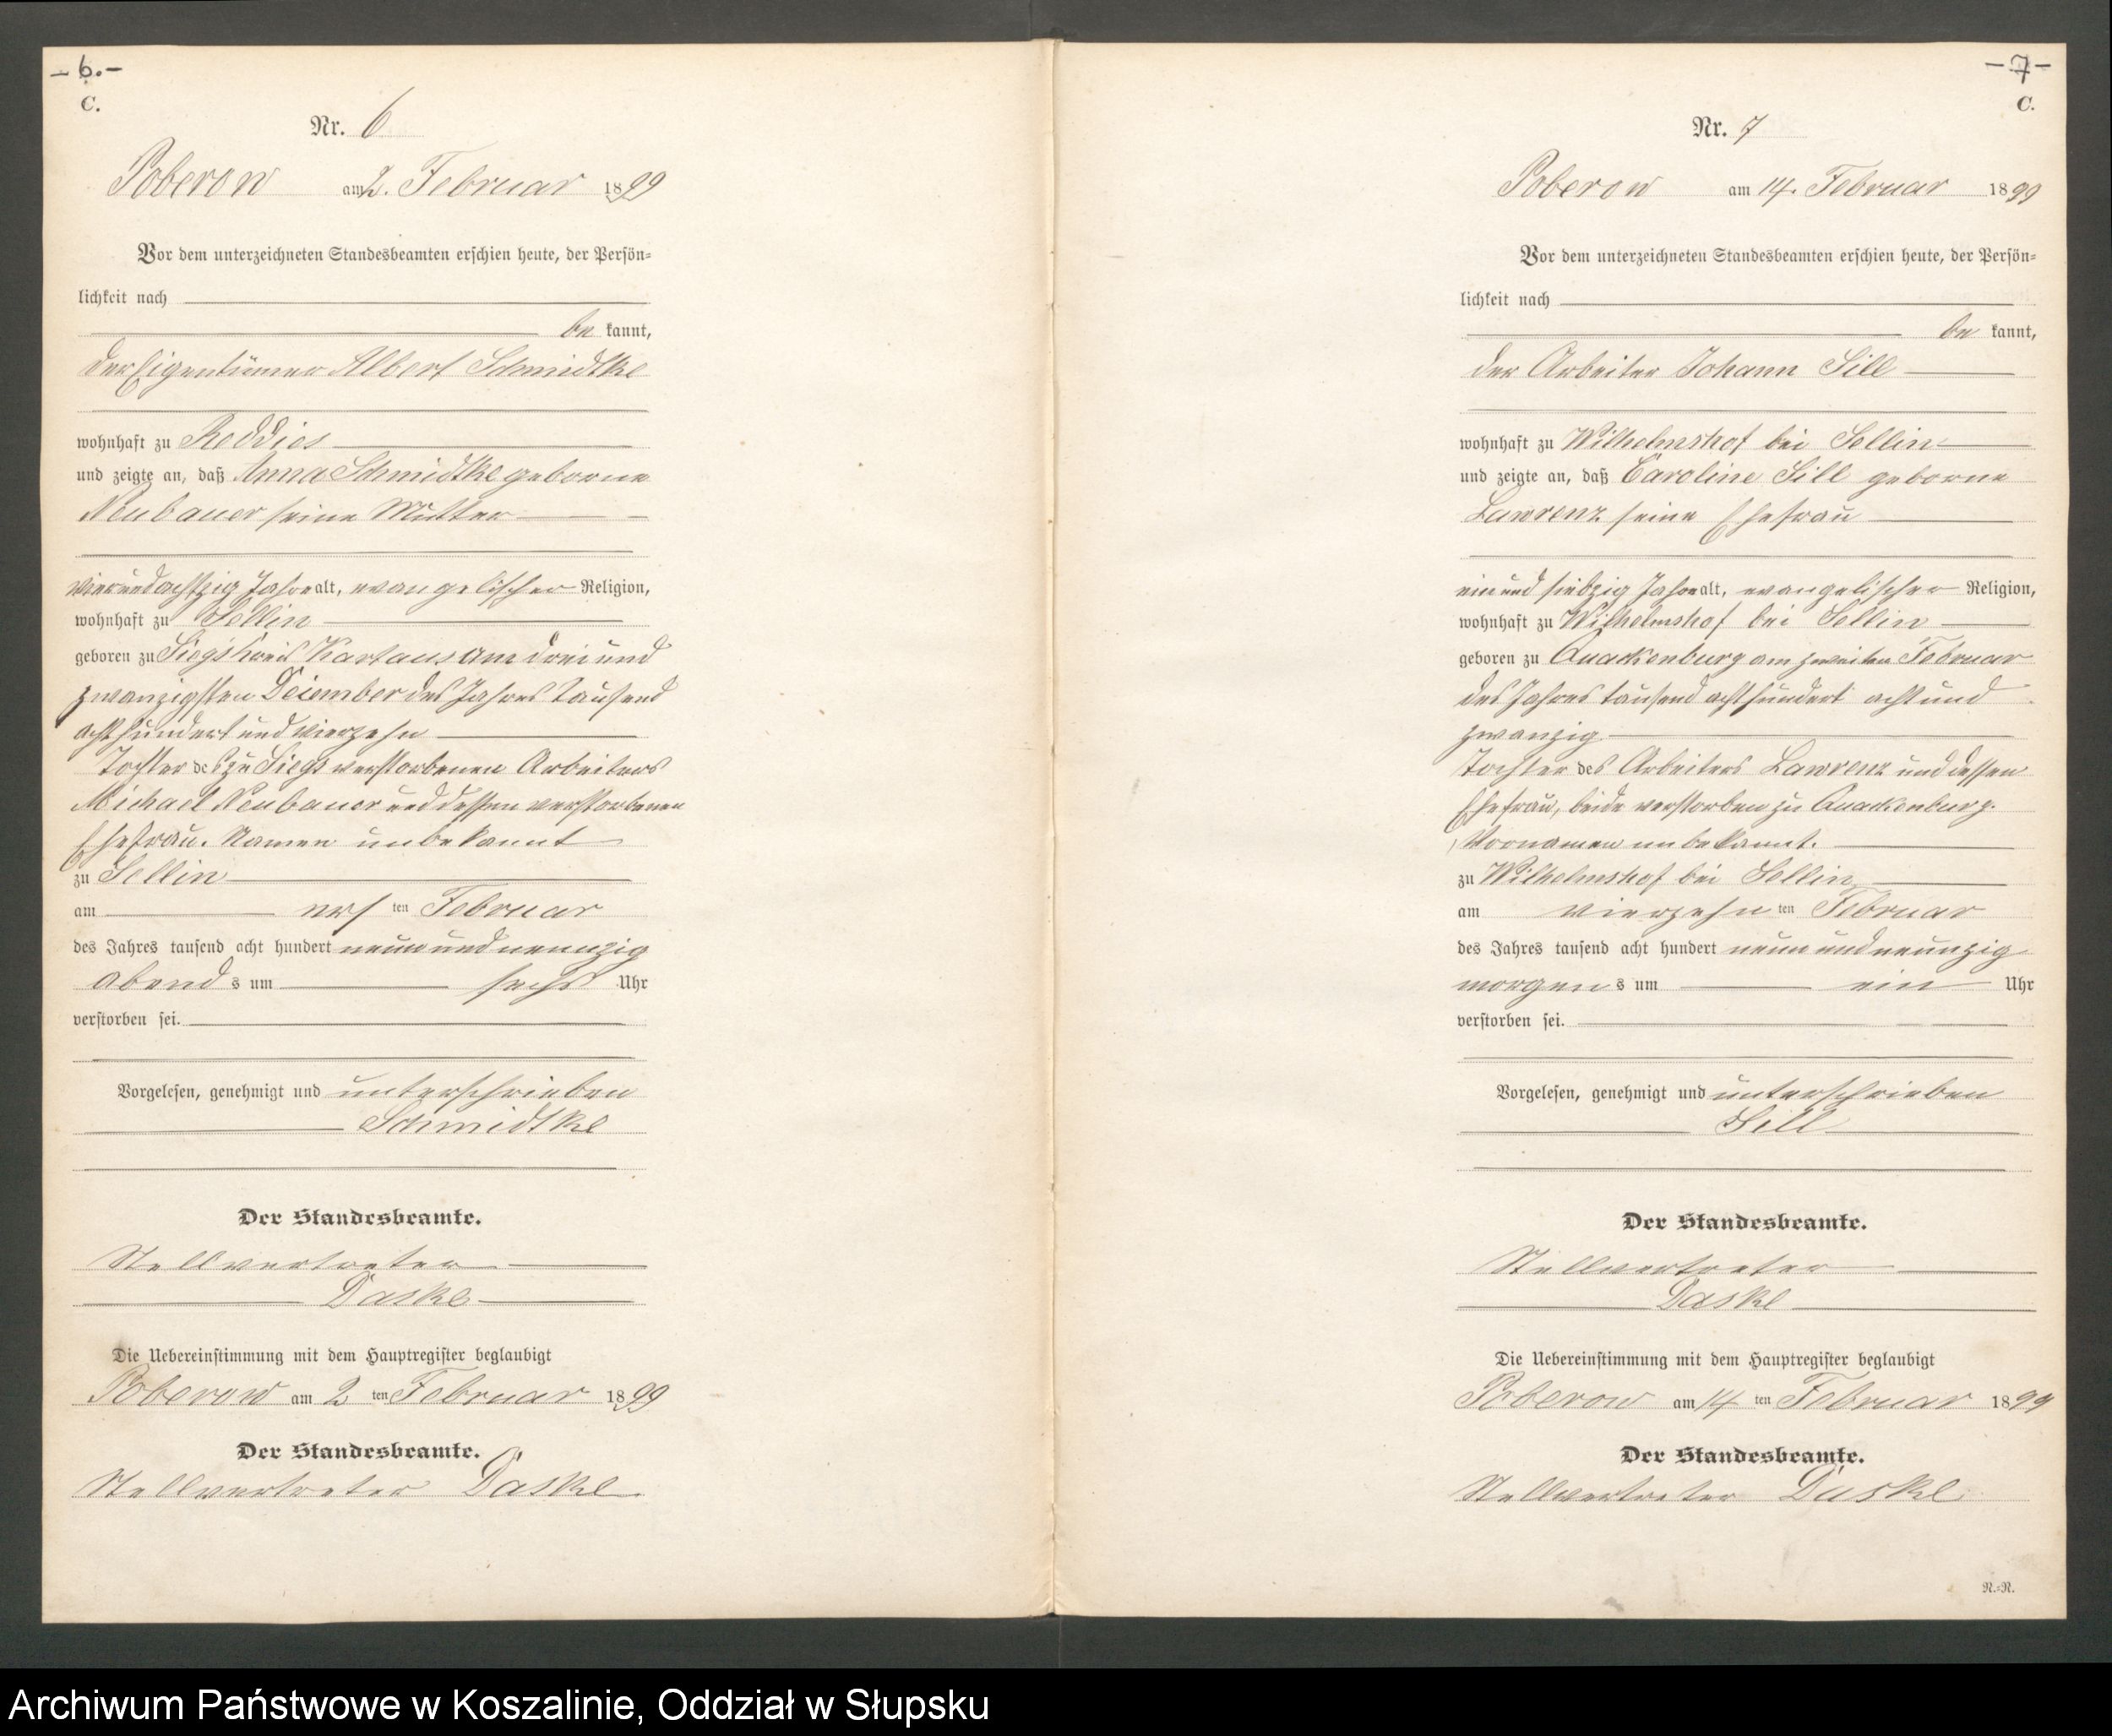 – 6. –
C.
Nr. 6
Poberow am 2. Februar 1899
Vor dem unterzeichneten Standesbeamten erschien heute, der Persön-
lichkeit nach
be kannt,
der Eigentümer Albert Schmidtke
wohnhaft zu Reddies
und zeigte an, daß Anna Schmidtke geborne
Neubauer seine Mutter
vierundachtzig Jahre alt, evangelischer Religion,
wohnhaft zu Sellin
geboren zu Kreis Kartaus am drei und
zwanzigsten Dezember des Jahres tausend
achthundert und vierzehn
Tochter des zu verstorbenen Arbeiters
Michael Neubauer und dessen verstorbenen
Ehefrau. Namen unbekannt
zu Sellin
am ersten Februar
des Jahres tausend acht hundert neunundneunzig
abends um sechs Uhr
verstorben sei.
Vorgelesen, genehmigt und unterschrieben
Schmidtke
Der Standesbeamte.
Stellvertreter
Daske
Die Uebereinstimmung mit dem Hauptregister beglaubigt
Poberow am 2 ten Februar 1899
Der Standesbeamte.
Stellvertreter Daske
– 7 –
C.
Nr. 7
Poberow am 14. Februar 1899
Vor dem unterzeichneten Standesbeamten erschien heute, der Persön-
lichkeit nach
be kannt,
der Arbeiter Johann Sill
wohnhaft zu Wilhelmshof bei Sellin
und zeigte an, daß Caroline Sill geborne
Lawrenz seine Ehefrau
ein und siebzig Jahre alt, evangelischer Religion,
wohnhaft zu Wilhelmshof bei Sellin
geboren zu Quackenburg am zweiten Februar
des Jahres tausend achthundert acht und
zwanzig
Tochter des Arbeiters Lawrenz und dessen
Ehefrau, beide verstorben zu Quackenburg.
Vornamen unbekannt.
zu Wilhelmshof bei Sellin
am vierzehnten Februar
des Jahres tausend acht hundert neun und neunzig
morgens um ein Uhr
verstorben sei.
Vorgelesen, genehmigt und unterschrieben
Sill
Der Standesbeamte.
Stellvertreter
Daske
Die Uebereinstimmung mit dem Hauptregister beglaubigt
Poberow am 14 ten Februar 1899
Der Standesbeamte.
Stellvertreter Daske
N.-N.
Archiwum Państwowe w Koszalinie, Oddział w Słupsku